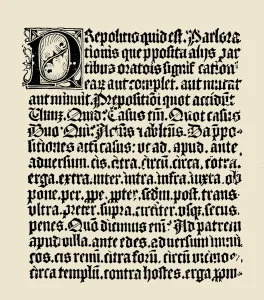 Prepositio quid est. Pars ora
tionis que pposita alijs par
tibus orationis significationē
earū aut complet. aut mutat
aut minuit. Prepositiōi quot accidūt
Unū. Quid? Casus tm̄. Quot casus
Duo. Qui? Accūs ⁊ ablatiūs. Da ppo-
sitiones acti casus: vt ad. apud. ante.
aduersum. cis. citra. circū. circa. cōtra.
erga. extra. inter. intra. infra. iuxta. ob
pone. per. ppe. ppter. scdm̄. post. trans.
vltra. preter. supra. circiter. vsq̄. secus.
penes. Quō dicimus em̄? Ad patrem
apud villā. ante edes. aduersum inimi
cos. cis renū. citra forū. circū vicinos.
circa templū. contra hostes. erga